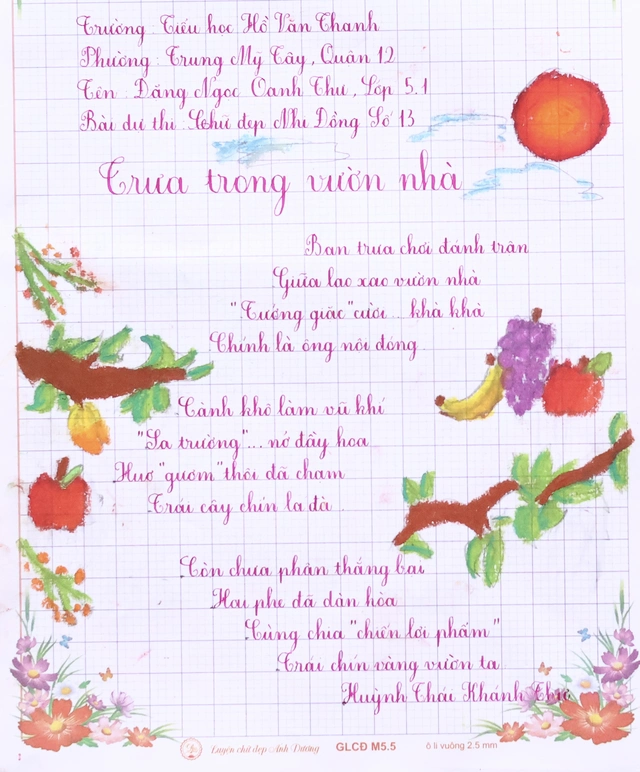 Trường : Tiểu học Hồ Văn Thanh
Phường : Trung Mỹ Tây, Quận 12
Tên : Đặng Ngọc Oanh Thư, Lớp 5.1
Bài dự thi : Chữ đẹp Nhi Đồng Số 13
Trưa trong vườn nhà
Ban trưa chơi đánh trận
Giữa lao xao vườn nhà
"Tướng giặc" cười... khà khà
Chính là ông nội đóng
Cành khô làm vũ khí
"Sa trường"... nở đầy hoa
Huơ "gươm" thôi đã chạm
Trái cây chín la đà
Còn chưa phân thắng bại
Hai phe đã dàn hòa
Cùng chia "chiến lợi phẩm"
Trái chín vàng vườn ta
Huỳnh Thái Khánh Chúc
Luyện chữ đẹp Ánh Dương GLCĐ M5.5 ô li vuông 2.5 mm